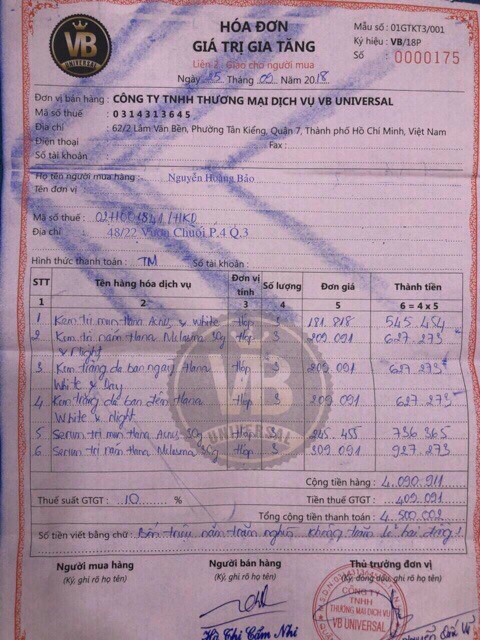 VB
UNIVERSAL
HÓA ĐƠN
GIÁ TRỊ GIA TĂNG
Liên 2: Giao cho người mua
Ngày 25 Tháng 09 Năm 2018
Mẫu số : 01GTKT3/001
Ký hiệu : VB/18P
Số : 0000175
Đơn vị bán hàng : CÔNG TY TNHH THƯƠNG MẠI DỊCH VỤ VB UNIVERSAL
Mã số thuế : 0314313645
Địa chỉ : 62/2 Lâm Văn Bền, Phường Tân Kiểng, Quận 7, Thành phố Hồ Chí Minh, Việt Nam
Điện thoại : Fax :
Số tài khoản :
Họ tên người mua hàng : Nguyễn Hoàng Bảo
Tên đơn vị
Mã số thuế : /HKD
Địa chỉ : 48/22 Vườn Chuối P.4 Q.3
Hình thức thanh toán : TM Số tài khoản :
STT Tên hàng hóa dịch vụ Đơn vị tính Số lượng Đơn giá Thành tiền
1 2 3 4 5 6 = 4 x 5
1 Kem trị mụn Hana Acnis & White Hộp 3 181.818 545.454
2 Kem trị nám Hana Melasma 30g Hộp 3 209.091 627.273
& Night
3 Kem trắng da ban ngày Hana Hộp 3 209.091 627.273
White & Day
4 Kem trắng da ban đêm Hana Hộp 3 209.091 627.273
White & Night
5 Serum trị mụn Hana Hộp 3 245.455 736.365
6 Serum trị nám Hana Melasma Hộp 3 309.091 927.273
VB
UNIVERSAL
Cộng tiền hàng : 4.090.911
Thuế suất GTGT : 10 % Tiền thuế GTGT : 409.091
Tổng cộng tiền thanh toán : 4.500.002
Số tiền viết bằng chữ : Bốn triệu năm trăm nghìn không trăm lẻ hai đồng!
Người mua hàng Người bán hàng Thủ trưởng đơn vị
(Ký, ghi rõ họ tên) (Ký, ghi rõ họ tên) (Ký, đóng dấu, ghi rõ họ tên)
CÔNG TY
TNHH
THƯƠNG MẠI DỊCH VỤ
VB UNIVERSAL
Hà Thị Cẩm Nhi